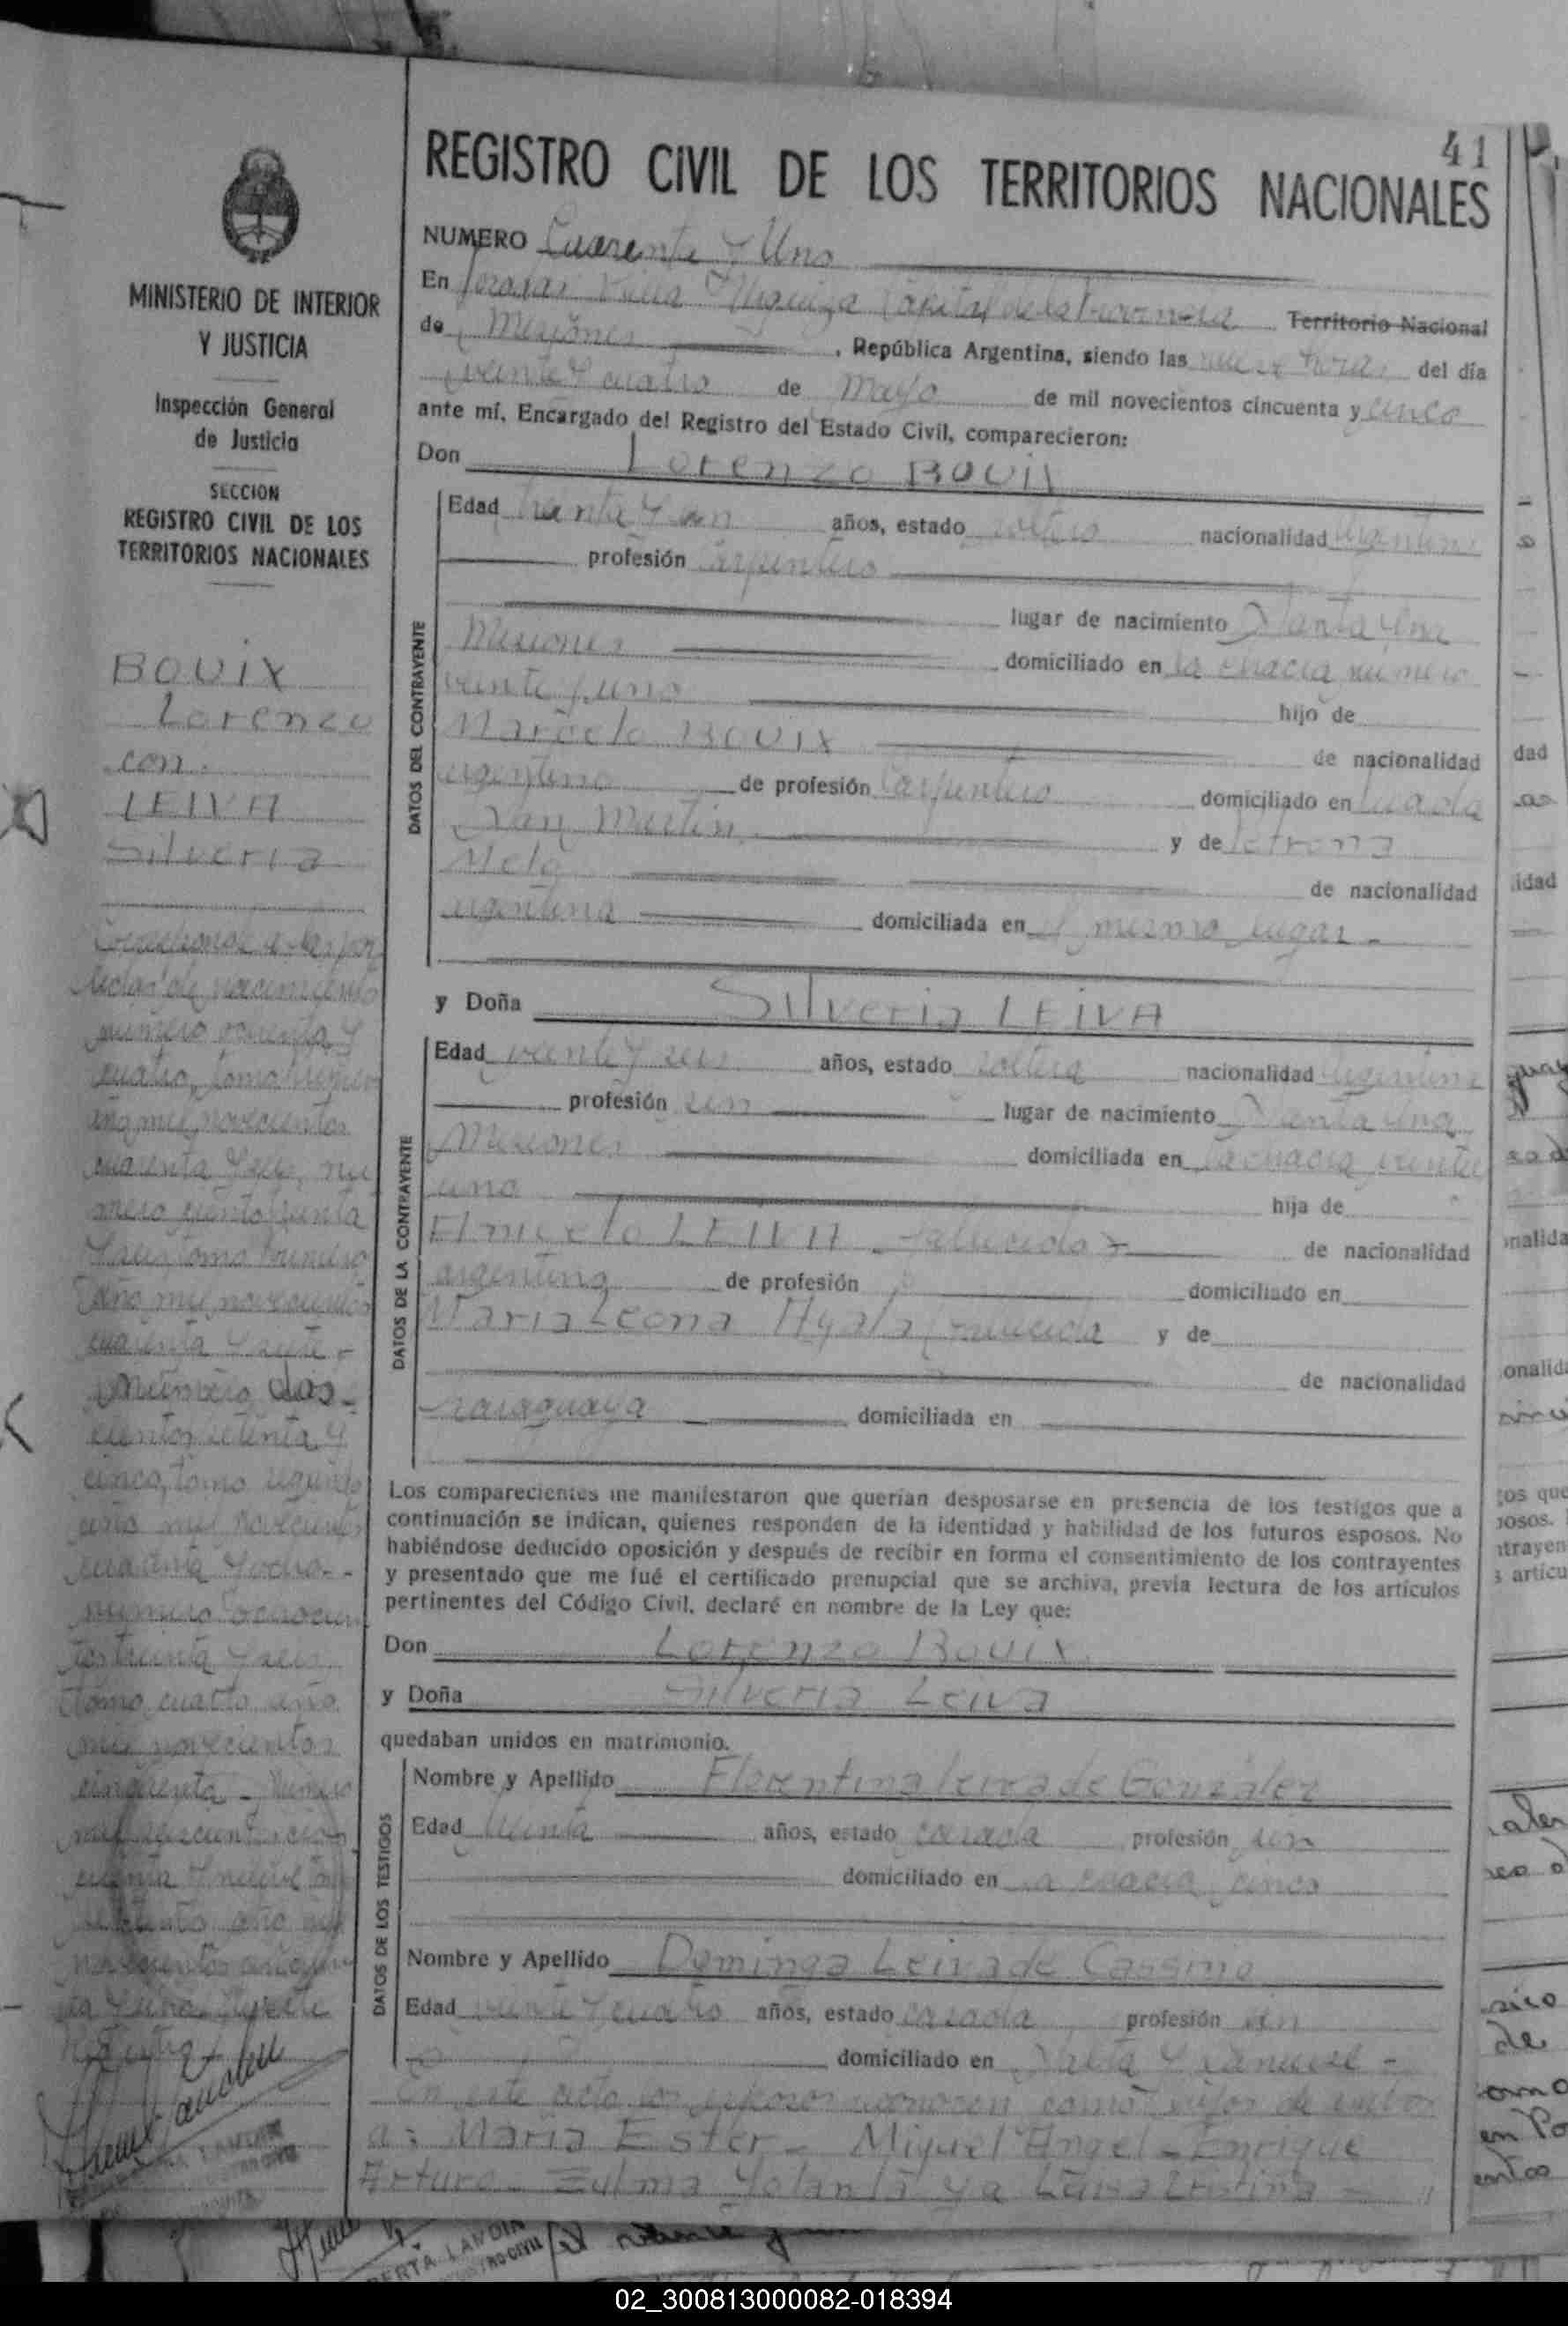 41
REGISTRO CIVIL DE LOS TERRITORIOS NACIONALES
MINISTERIO DE INTERIOR
Y JUSTICIA
Inspección General
de Justicia
SECCION
REGISTRO CIVIL DE LOS
TERRITORIOS NACIONALES
BOUIX
Lorenzo
con
LEIVA
Silveria
partidas de nacimiento
número ochenta y
cuatro, tomo primero
año mil novecientos
cuarenta y seis, nú
mero ciento treinta
y seis tomo primero
año mil novecientos
cuarenta y siete -
número dos-
cientos setenta y
cinco, tomo segundo
año mil novecientos
cuarenta y ocho -
número ochocien
tos treinta y seis
tomo cuarto año
mil novecientos
cincuenta - Número
mil seiscientos cin
cuenta y nueve
año mil
novecientos cincuen
ta y
NUMERO Cuarenta y Uno
En Posadas Villa Miguiza Capital de la Provincia Territorio Nacional
de Misiones, República Argentina, siendo las nueve horas del día
veinte y cuatro de Mayo de mil novecientos cincuenta y cinco
ante mí, Encargado del Registro del Estado Civil, comparecieron:
Don Lorenzo BOUIX
DATOS DEL CONTRAYENTE
Edad treinta y un años, estado soltero nacionalidad argentina
profesión Carpintero
lugar de nacimiento Santa Ana
Misiones domiciliado en la chacra número
veinte y uno hijo de
Marcelo BOUIX de nacionalidad
argentino de profesión Carpintero domiciliado en
San Martin y de Petrona
Melo de nacionalidad
argentina domiciliada en el mismo lugar -
y Doña Silveria LEIVA
DATOS DE LA CONTRAYENTE
Edad veinte y seis años, estado soltera nacionalidad argentina
profesión sin lugar de nacimiento Santa Ana
Misiones domiciliada en la chacra veinte y
uno hija de
LEIVA fallecido - de nacionalidad
argentino de profesión domiciliado en
Maria Leona Ayala fallecida y de
de nacionalidad
paraguaya domiciliada en
Los comparecientes me manifestaron que querían desposarse en presencia de los testigos que a
continuación se indican, quienes responden de la identidad y habilidad de los futuros esposos. No
habiéndose deducido oposición y después de recibir en forma el consentimiento de los contrayentes
y presentado que me fué el certificado prenupcial que se archiva, previa lectura de los artículos
pertinentes del Código Civil, declaré en nombre de la Ley que:
Don Lorenzo Bouix
y Doña Silveria Leiva
quedaban unidos en matrimonio.
DATOS DE LOS TESTIGOS
Nombre y Apellido Florentina Leiva de González
Edad treinta años, estado casada profesión sin
domiciliado en la chacra cinco
Nombre y Apellido Dominga Leiva de
Edad veinte y cuatro años, estado casada profesión sin
domiciliado en Salta y
En este acto los esposos reconocen como hijos de ambos
a: Maria Ester - Miguel Angel - Enrique
Arturo - Zulma Yolanda y a Luisa Cristina -
02_300813000082-018394